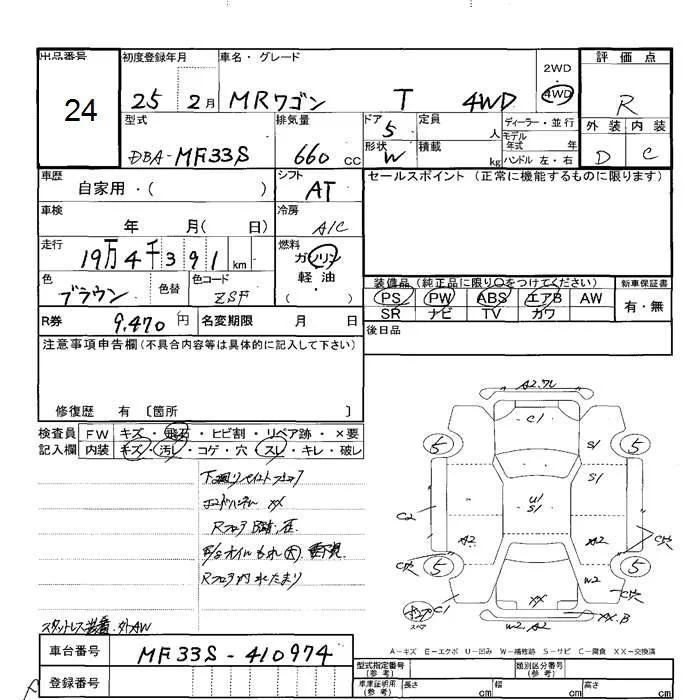 出品番号 初度登録年月 車名・グレード 2WD 評価点
24 25 2月 MRワゴン T 4WD 4WD R
型式 排気量 ドア 定員 ディーラー・並行 外装 内装
DBA-MF33S 660 CC 5 人 モデル年式 年 D C
形状 W 積載 kg ハンドル 左・右
車歴 シフト セールスポイント (正常に機能するものに限ります)
自家用・( ) AT
車検 冷房
年 月( 日) A/C
走行 燃料
19万4千391 km ガソリン
色 色替 色コード 軽油 装備品 (純正品に限り○をつけてください) 新車保証書
ブラウン ZSF ( ) PS PW ABS エアB AW 有・無
SR ナビ TV カワ
R券 9,470 円 名変期限 月 日 後日品
注意事項申告欄(不具合内容等は具体的に記入して下さい)
修復歴 有 〔箇所 〕
検査員 FW キズ・飛石・ヒビ割・リペア跡・×要
記入欄 内装 キズ・汚レ・コゲ・穴・スレ・キレ・破レ
A2.ワレ
C1
5 S1 5
S1
U1
S1
C2 A2 A2
5 W2 5
C1 XX XX.B
W2.A2
スタットレス装着.外AW
A-キズ E-エクボ U-凹み W-補修跡 S-サビ C-腐食 XX-交換済
車台番号 MF33S-410974 型式指定番号(参考) 類別区分番号(参考)
登録番号 車庫証明用(参考) 長さ cm 幅 cm 高さ cm